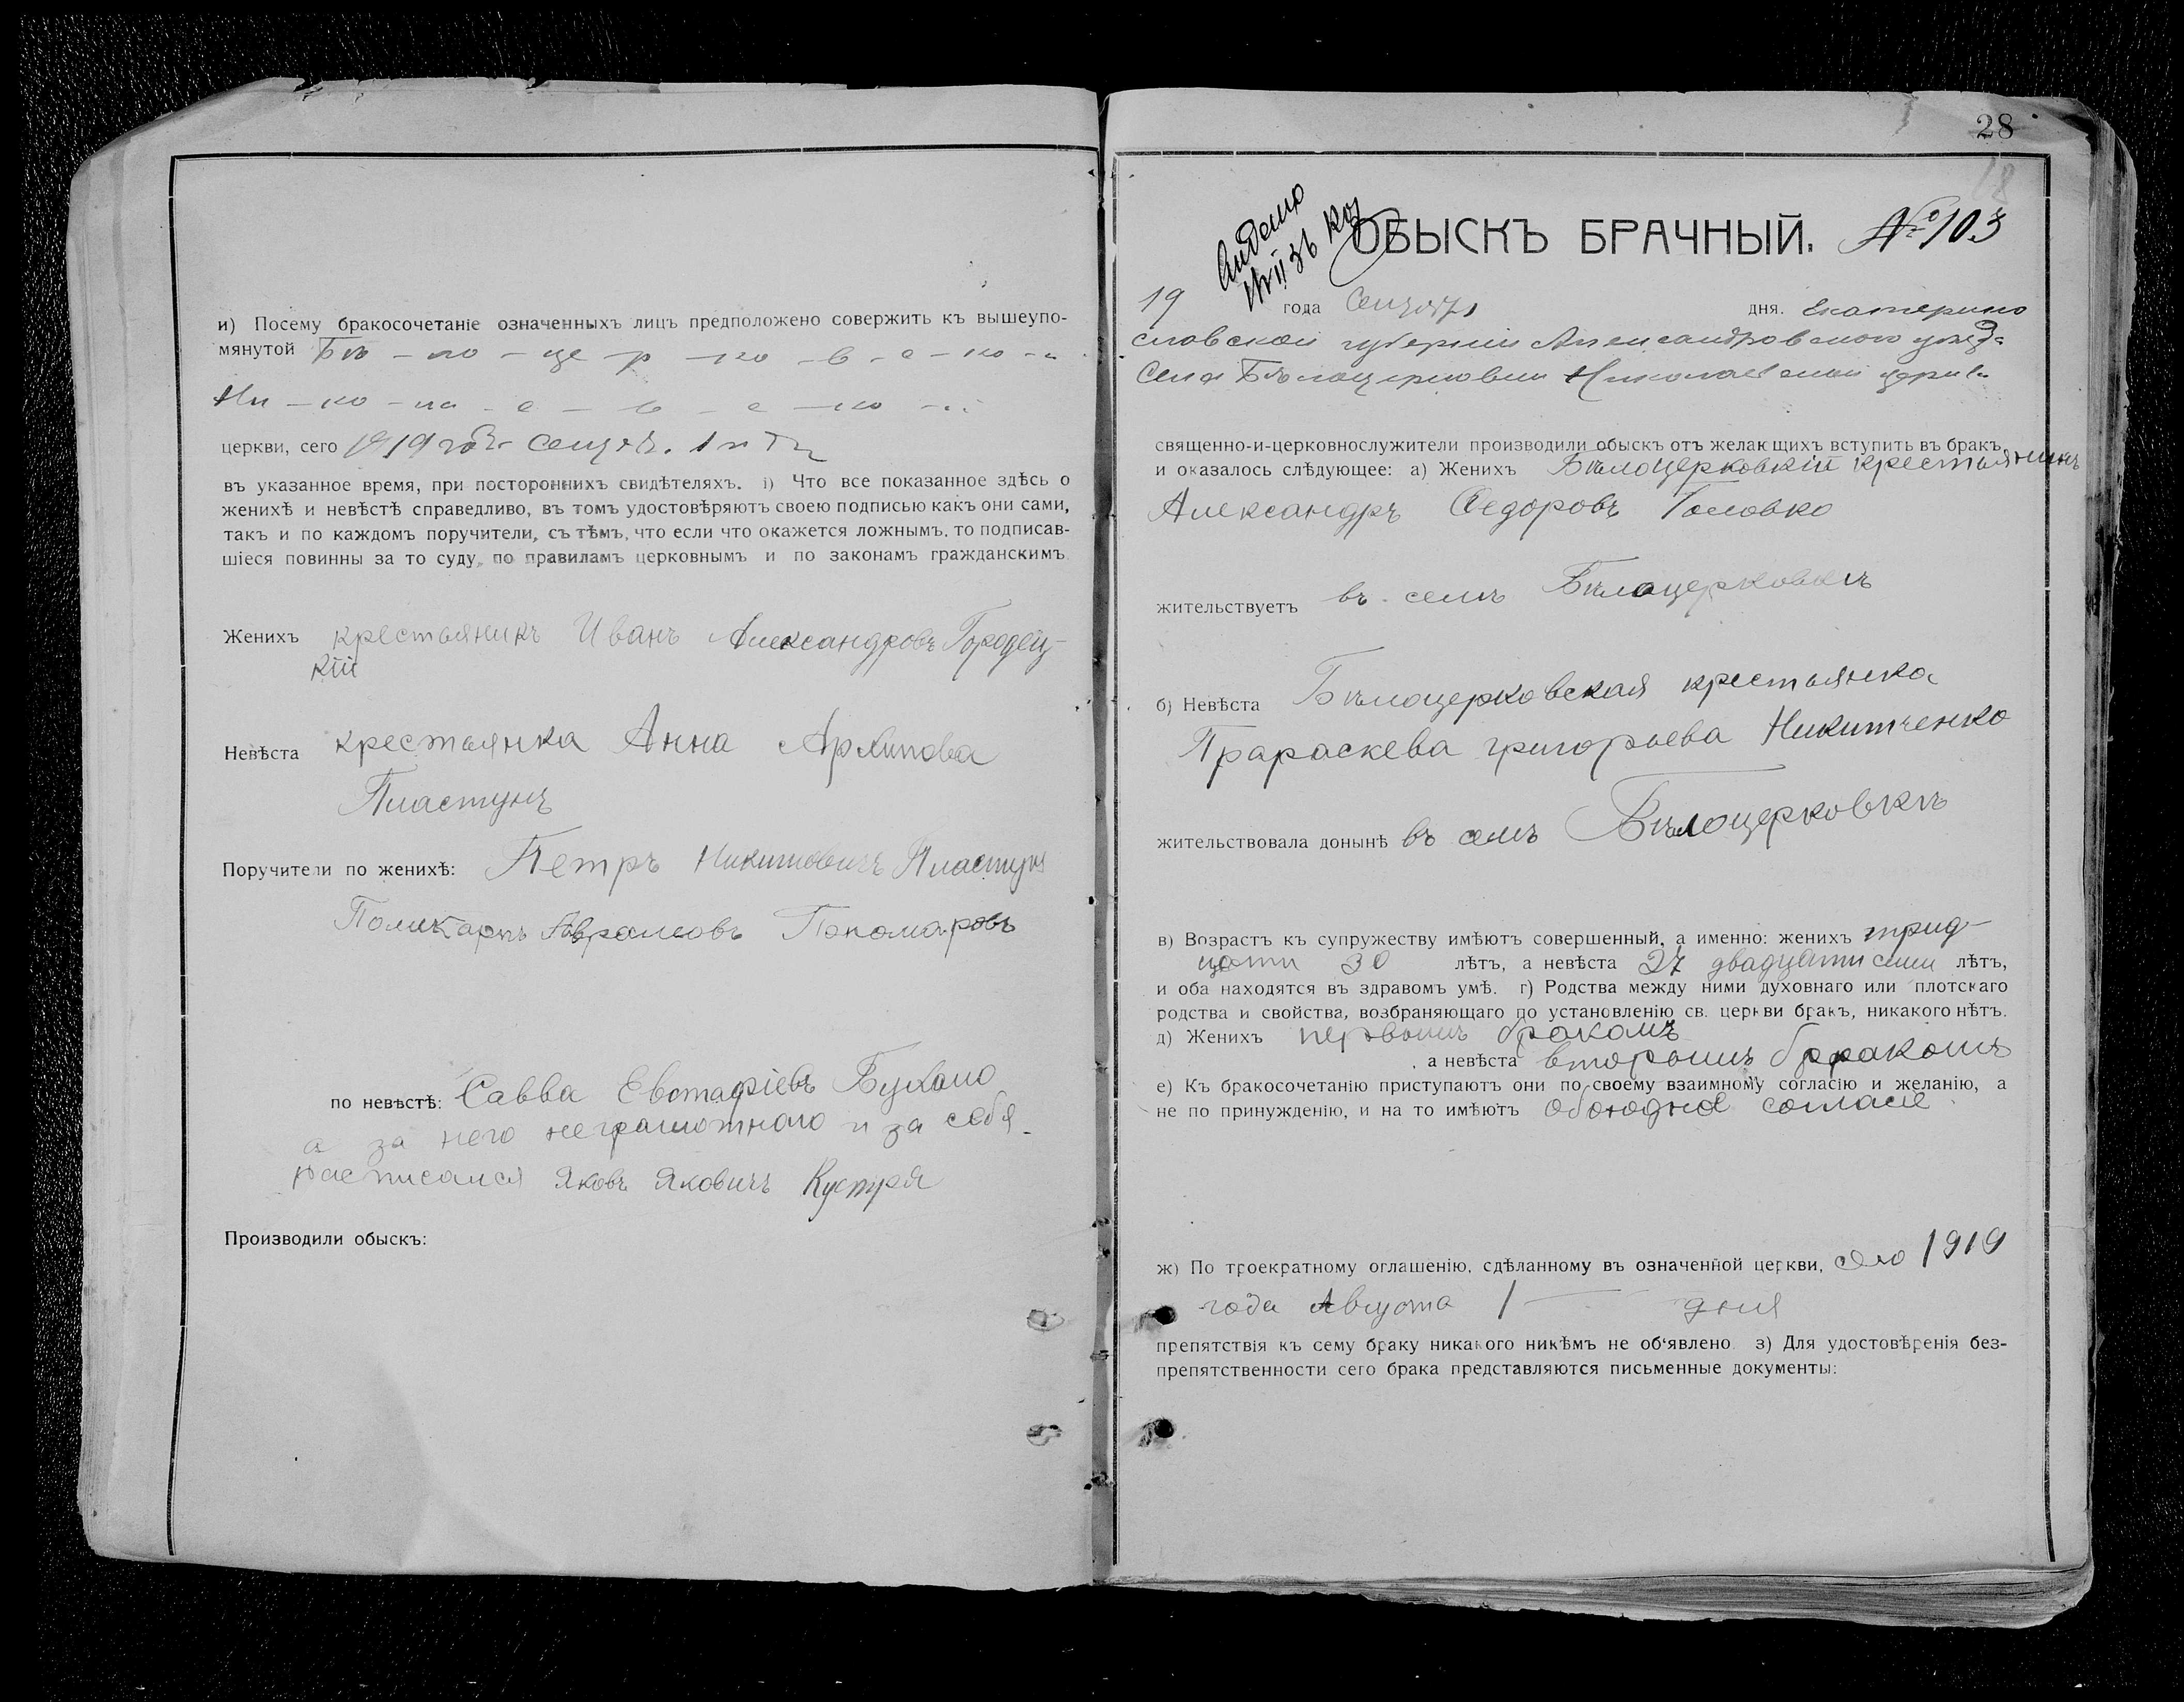 и) Посему бракосочетаніе означенныхъ лицъ предположено совержить къ вышеупо-
мянутой Бѣ - ло - це - р - ко - в - с - ко - й
Ни - ко - ла - е - в - с - ко - й
церкви, сего 1919 года
въ указанное время, при постороннихъ свидѣтеляхъ. і) Что все показанное здѣсь о
женихѣ и невѣстѣ справедливо, въ томъ удостовѣряютъ своею подписью какъ они сами,
такъ и по каждомъ поручители, съ тѣмъ, что если что окажется ложнымъ, то подписав-
шіеся повинны за то суду, по правиламъ церковнымъ и по законамъ гражданскимъ.
Женихъ крестьянинъ Иванъ Александровъ Городец-
кій
Невѣста крестьянка Анна Архипова
Пластунъ
Поручители по женихѣ: Петръ Никитовичъ Пластун
Поликарпъ Аврамовъ Пономаровъ
по невѣстѣ: Савва Евстафіевъ
а за него неграмотного и за себя
расписался Яковъ Яковичъ Кустря
Производили обыскъ:
28
18
ОБЫСКЪ БРАЧНЫЙ. № 103
19 года дня. Екатерино
славской губерніи Александровского уѣзда
Села Бѣлоцерковки Николаевской церкви
священно-и-церковнослужители производили обыскъ отъ желающихъ вступить въ бракъ,
и оказалось слѣдующее: а) Женихъ Бѣлоцерковкій крестьянинъ
Александръ Федоровъ Головко
жительствуетъ въ селѣ Бѣлоцерковкѣ
б) Невѣста Бѣлоцерковская крестьянка
Прараскева григорьева Никитченко
жительствовала донынѣ въ селѣ Бѣлоцерковкѣ
в) Возрастъ къ супружеству имѣютъ совершенный, а именно: женихъ трид-
цати 30 лѣтъ, а невѣста 27 двадцати семи лѣтъ,
и оба находятся въ здравомъ умѣ. г) Родства между ними духовнаго или плотскаго
родства и свойства, возбраняющаго по установленію св. церкви бракъ, никакого нѣтъ.
д) Женихъ первымъ бракомъ
а невѣста вторымъ бракомъ
е) Къ бракосочетанію приступаютъ они по своему взаимному согласію и желанію, а
не по принужденію, и на то имѣютъ обоюдное согласіе.
ж) По троекратному оглашенію, сдѣланному въ означенной церкви, сего 1919
года Августа 1 дня
препятствія къ сему браку никакого никѣмъ не об'явлено. з) Для удостовѣренія без-
препятственности сего брака представляются письменные документы: